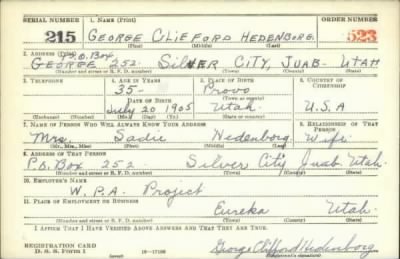 SERIAL NUMBER 1. NAME (Print) ORDER NUMBER
215 GEORGE CLIFFORD HEDENBORG 523
(First) (Middle) (Last)
2. ADDRESS (Print) P.O. Box
GEORGE 252. SILVER CITY, JUAB- UTAH
(Number and street or R. F. D. number) (Town) (County) (State)
3. TELEPHONE 4. AGE IN YEARS 5. PLACE OF BIRTH 6. COUNTRY OF CITIZENSHIP
35- Provo
DATE OF BIRTH (Town or county)
July 20 1905 Utah. U.S.A
(Exchange) (Number) (Mo.) (Day) (Yr.) (State or country)
7. NAME OF PERSON WHO WILL ALWAYS KNOW YOUR ADDRESS 8. RELATIONSHIP OF THAT PERSON
Mrs. Sadie Hedenborg. Wife
(Mr., Mrs., Miss) (First) (Middle) (Last)
9. ADDRESS OF THAT PERSON
P.O. Box 252 Silver City Juab Utah.
(Number and street or R. F. D. number) (Town) (County) (State)
10. EMPLOYER'S NAME
W.P.A. Project
11. PLACE OF EMPLOYMENT OR BUSINESS
Eureka Utah.
(Number and street or R. F. D. number) (Town) (County) (State)
I AFFIRM THAT I HAVE VERIFIED ABOVE ANSWERS AND THAT THEY ARE TRUE.
REGISTRATION CARD
D. S. S. Form 1 16-17105 George Clifford Hedenborg
(Registrant's signature)